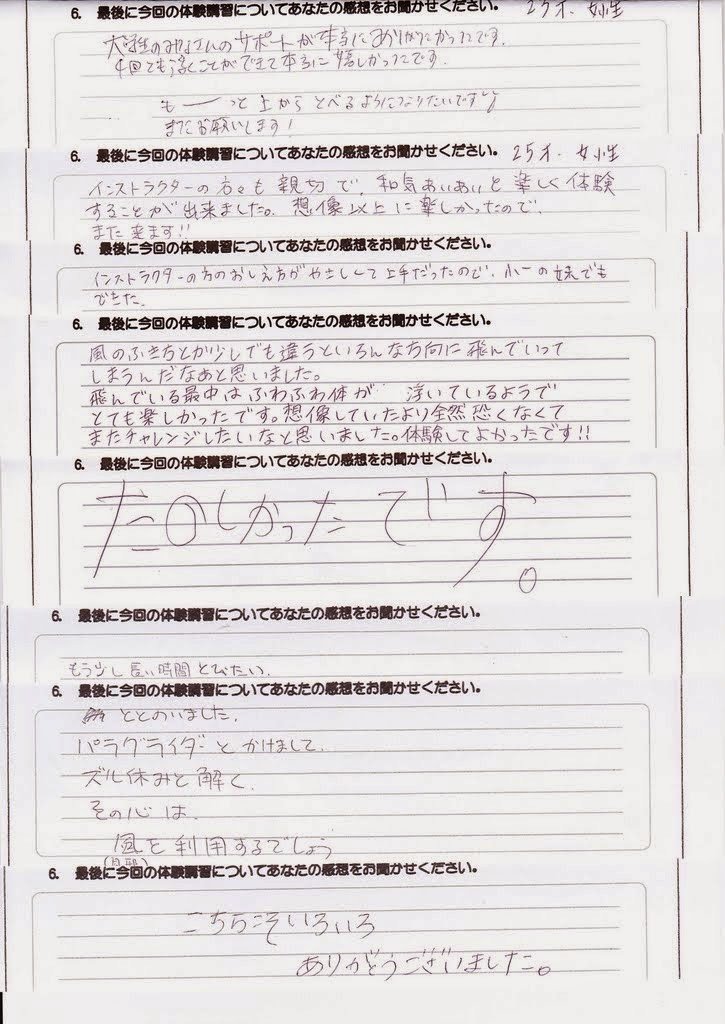 6. 最後に今回の体験講習についてあなたの感想をお聞かせください。 25才. 女性
大学生のみなさんのサポートが本当にありがたかったです。
4回とも浮くことができて本当に嬉しかったです。
もーっと上からとべるようになりたいです
またお願いします!
6. 最後に今回の体験講習についてあなたの感想をお聞かせください。 25才. 女性
インストラクターの方々も親切で、和気あいあいと楽しく体験
することが出来ました。想像以上に楽しかったので、
また来ます!!
6. 最後に今回の体験講習についてあなたの感想をお聞かせください。
インストラクターの方のおしえ方がやさしくて上手だったので、小一の妹でも
できた。
6. 最後に今回の体験講習についてあなたの感想をお聞かせください。
風のふきちとが少しでも違うといろんな方向に飛んでいって
しまうんだなあと思いました。
飛んでいる最中はふわふわ体が 浮いているようで
とても楽しかったです。想像していたより全然恐くなくて
またチャレンジしたいなと思いました。体験してよかったです!!
6. 最後に今回の体験講習についてあなたの感想をお聞かせください。
たのしかったです。
6. 最後に今回の体験講習についてあなたの感想をお聞かせください。
もう少し長い時間とびたい.
6. 最後に今回の体験講習についてあなたの感想をお聞かせください。
ととのいました.
パラグライダーとかけまして、
ズル休みと解く.
その心は.
風を利用するでしょう
(風邪)
6. 最後に今回の体験講習についてあなたの感想をお聞かせください。
こちらこそいろいろ
ありがとうございました。